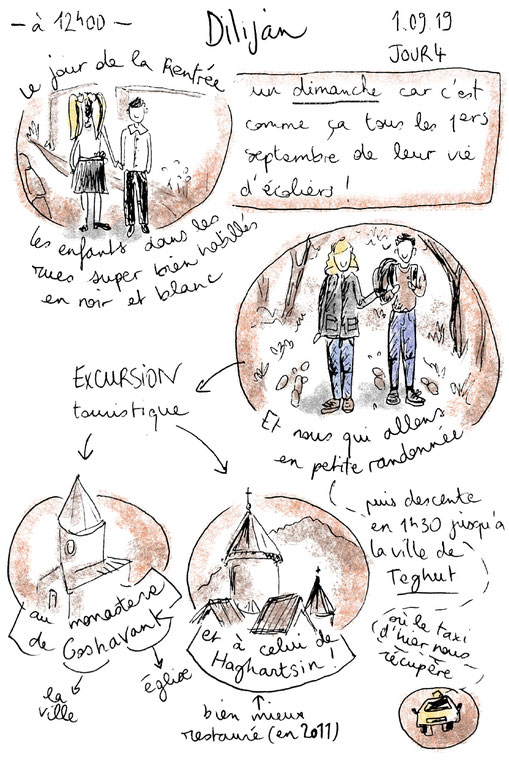 - à 12h00 -
Dilijan
1.09.19
JOUR 4
Le jour de la Rentrée
un dimanche car c'est
comme ça tous les 1ers
septembre de leur vie
d'écoliers !
les enfants dans les
rues super bien habillés
en noir et blanc
Et nous qui allons
en petite randonnée
EXCURSION
touristique
puis descente
en 1h30 jusqu'à
la ville de
Teghut
où le taxi
d'hier nous
récupère
au monastère
de Goshavank
la
ville
église
et à celui de
Haghartsin !
bien mieux
restauré (en 2011)